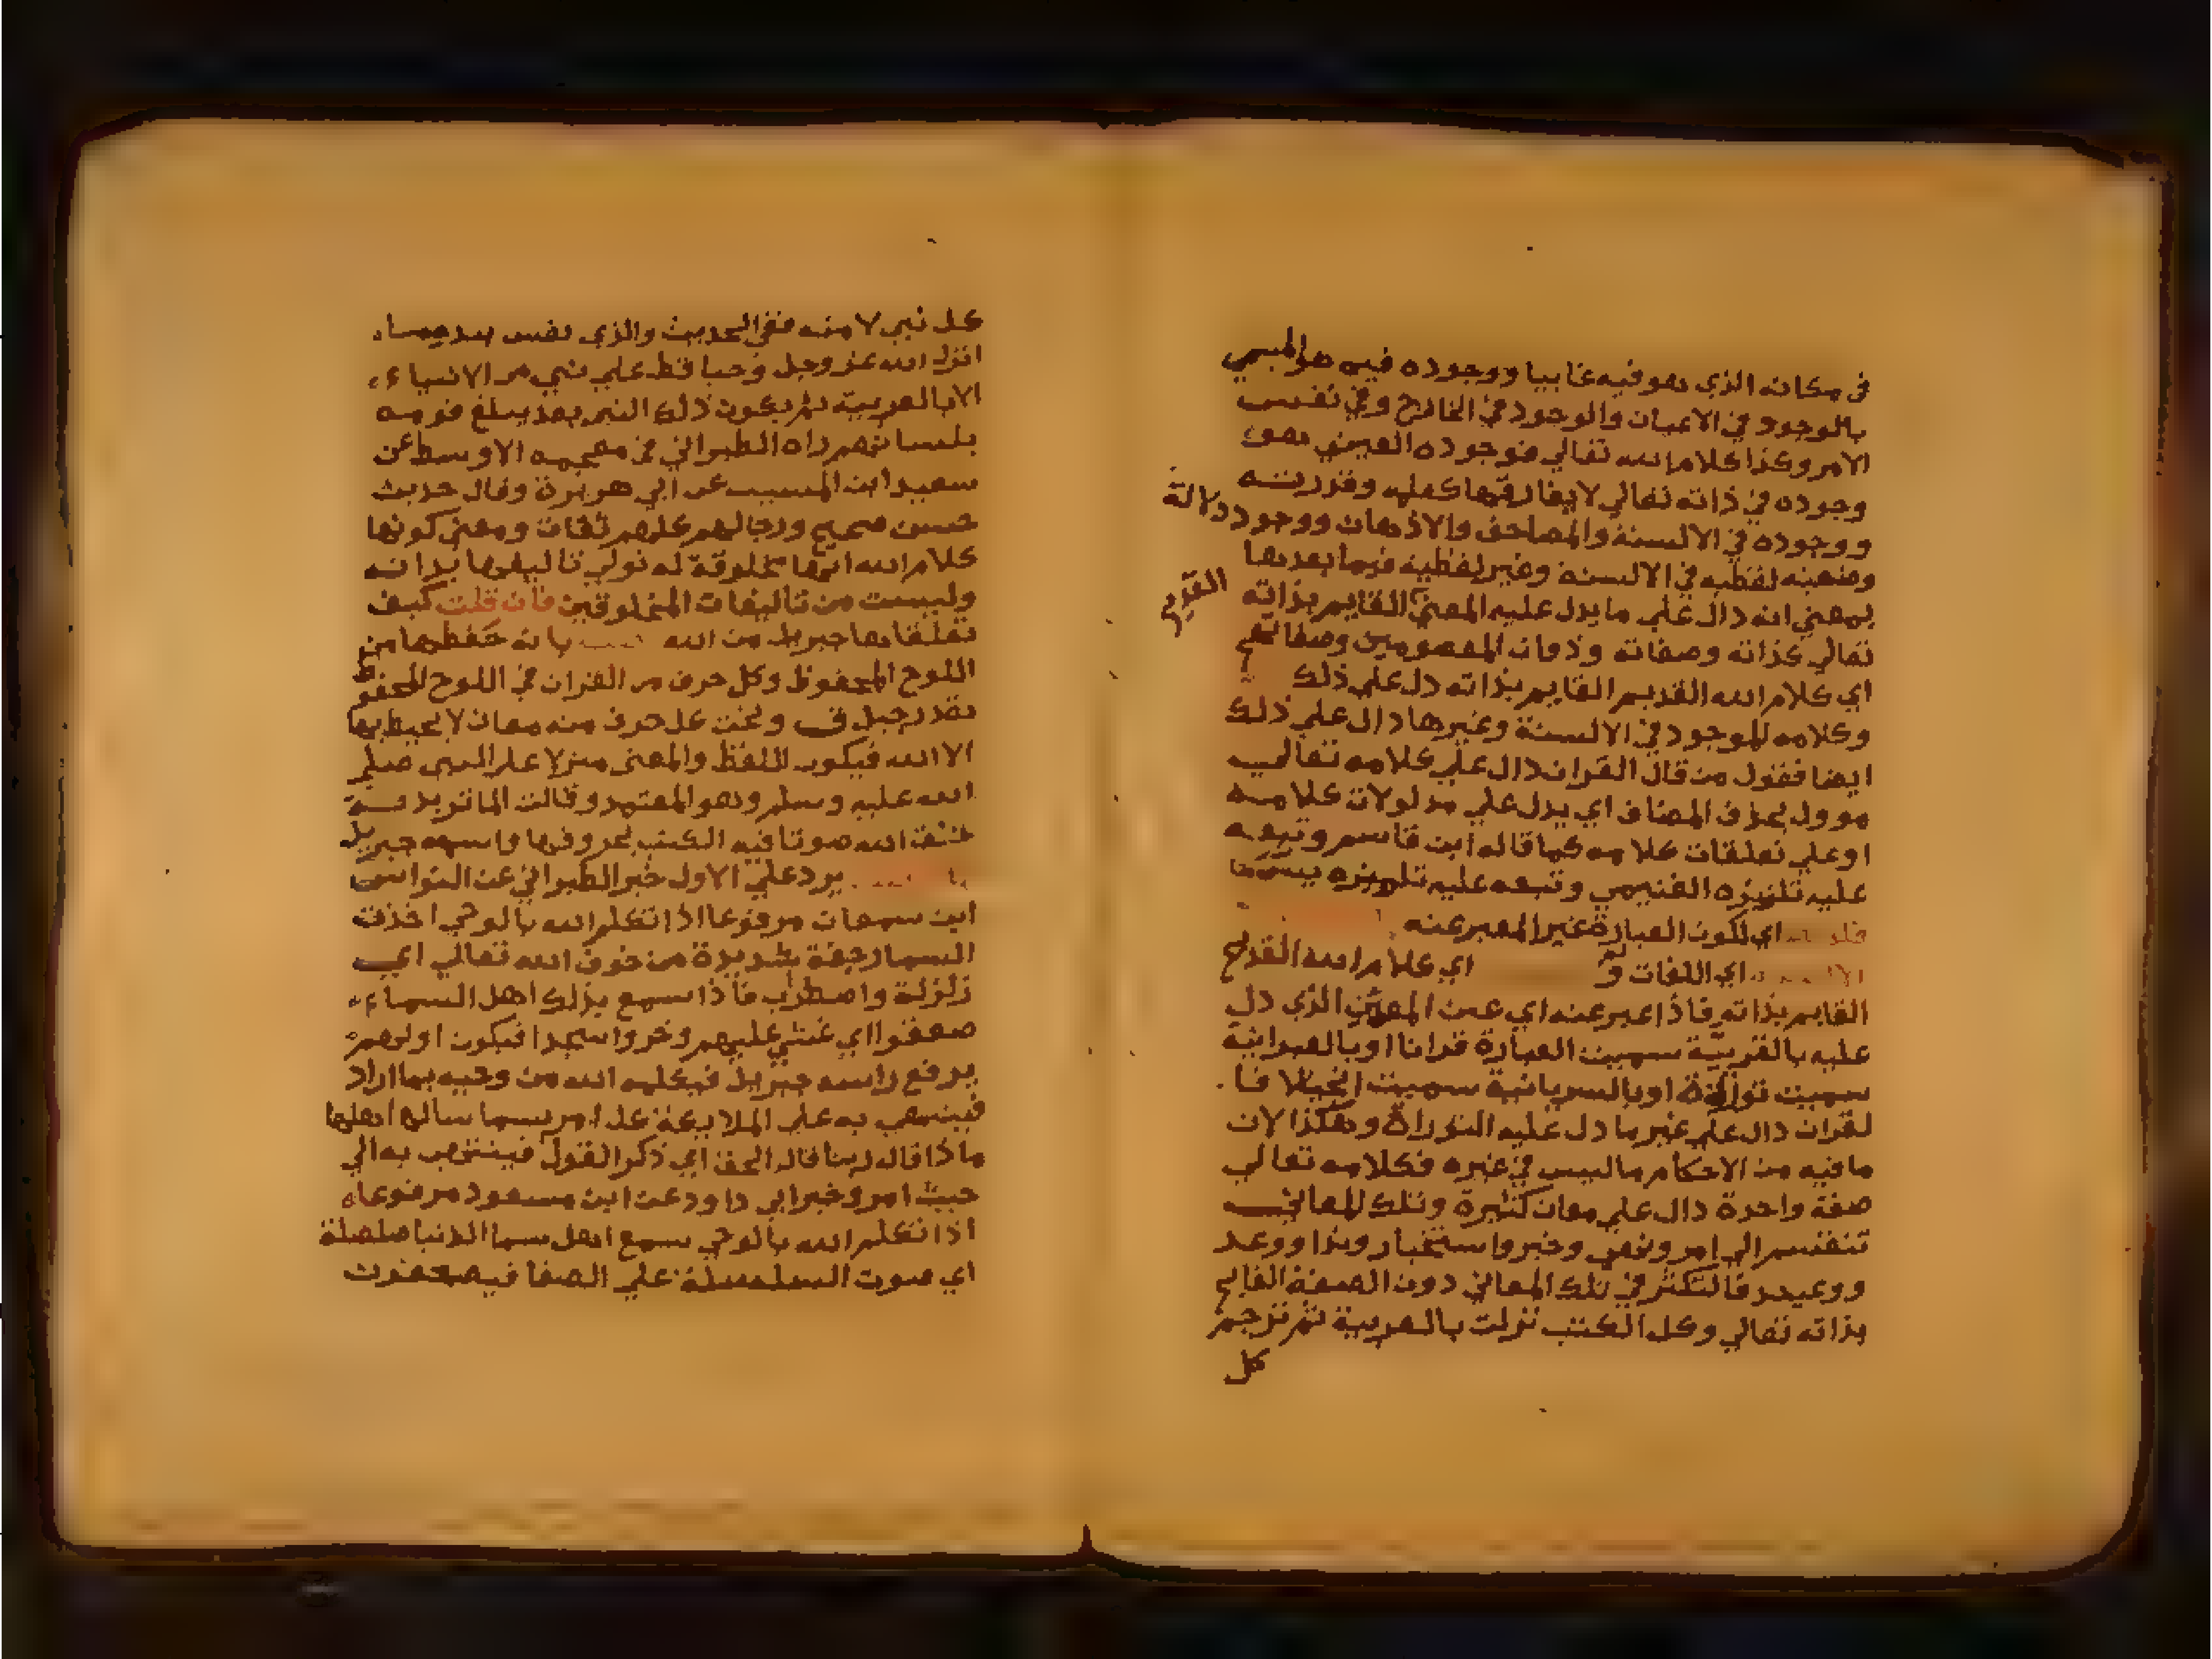 في مكانه الذي هو فيه غايبا ووجوده فيه هو المسمي
بالوجود في الاعيان والوجود في الخارج وفي نفس
الامر وكذا كلام الله تعالي فوجوده العيني هو
وجوده في ذاته تعالي لا يفارقها كعلمه وقدرته
ووجوده في الالسنة والمصاحف والاذهان ووجود دلالة
لفظيه في الالسنة وغير لفظية فيما بعدها
بمعني انه دال علي ما يدل عليه المعني القايم بذاته
القديم
تعالي كذاته وصفاته وذوات المعصومين وصفاتهم
اي كلام الله القديم القايم بذاته دل علي ذلك
وكلامه الموجود في الالسنة وغيرها دال علي ذلك
ايضا فقول من قال القران دال علي كلامه تعالي
موول بحذف المضاف اي يدل علي مدلولات كلامه
او علي تعلقات كلامه كما قاله ابن قاسم وتبعه
عليه تلميذه الغنيمي وتبعه عليه تلميذه
اي لكون العبارة غير المعبر عنه
اي اللغات اي كلام الله القديم
القايم بذاته فاذا عبر عنه اي عن المعني الذي دل
عليه بالعربية سميت العبارة قرانا او بالعبرانية
سميت توراة او بالسريانية سميت انجيلا فا
لقران دال علي غير ما دل عليه التوراة وهكذا لان
ما فيه من الاحكام ما ليس في غيره فكلامه تعالي
صفة واحدة دال علي معان كثيرة وتلك المعاني
تنقسم الي امر ونهي وخبر واستخبار وندا ووعد
ووعيد فالتكثر في تلك المعاني دون الصفة القايم
بذاته تعالي وكل الكتب نزلت بالعربية ثم ترجم
كل
كل نبي لامته ففي الحديث والذي نفسي بيده ما
انزل الله عز وجل وحيا قط علي نبي من الانبياء
الا بالعربية ثم يكون ذلك النبي بعد يبلغ قومه
بلسانهم رواه الطبراني في معجمه الاوسط عن
سعيد ابن المسيب عن ابي هريرة وقال حديث
حسن صحيح ورجالهم كلهم ثقات ومعني كونها
كلام الله انها مخلوقة له تولي تاليفها بذاته
وليست من تاليفات المخلوقين فان قلت كيف
تلقاها جبريل من الله بانه حفظها من
اللوح المحفوظ وكل حرف من القران في اللوح المحفوظ
بقدر جبل ق وتحت كل حرف منه معان لا يحيط بها
الا الله فيكون اللفظ والمعني منزلا علي النبي صلي
الله عليه وسلم وهو المعتمد وقالت الماتريدية
خلق الله صوتا فيه الكتب بحروفها واسمعه جبريل
يرد علي الاول خبر الطبراني عن النواس
ابن سمعان مرفوعا اذا تكلم الله بالوحي اخذت
السما رجفة شديدة من خوف الله تعالي اي
زلزلة واضطراب فاذا سمع بذلك اهل السماء
صعقوا اي غشي عليهم وخروا سجدا فيكون اولهم
يرفع راسه جبريل فيكلمه الله من وحيه بما اراد
فينتهي به علي الملايكة كلما مر بسما ساله اهلها
ماذا قال ربنا قال الحق اي ذكر القول فينتهي به الي
حيث امر وخبر ابي داود عن ابن مسعود مرفوعا
اذا تكلم الله بالوحي سمع اهل سما الدنيا صلصلة
اي صوت السلسلة علي الصفا فيصعقون